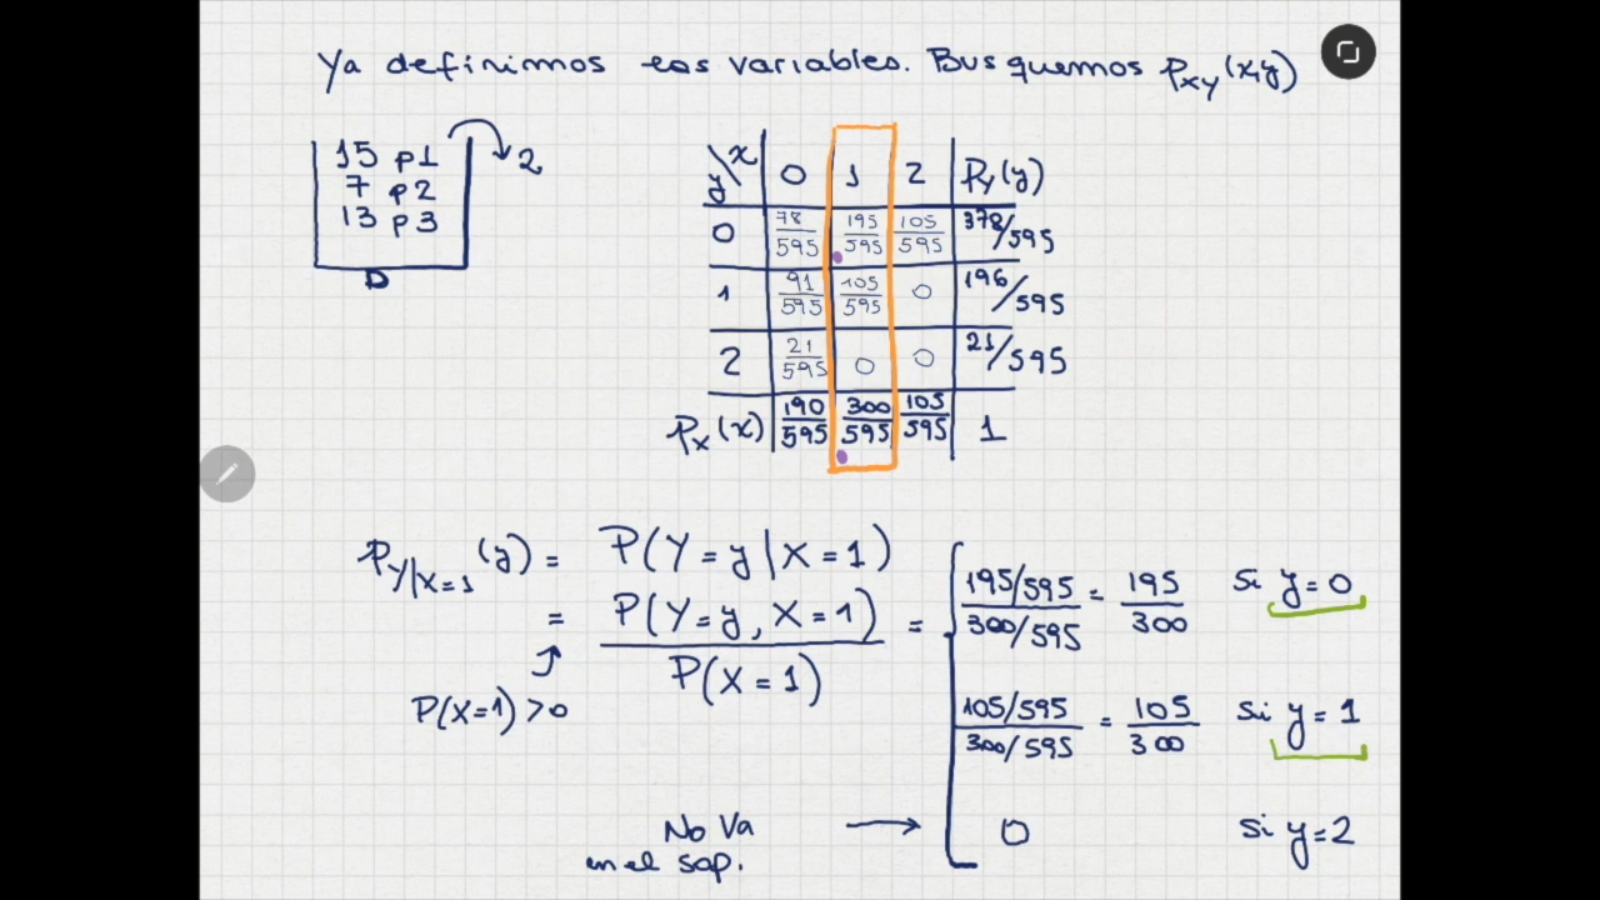 Ya definimos las variables. Busquemos P_XY(x,y)
15 p1
7 p2
13 p3
D
2
y\x 0 1 2 P_Y(y)
0 78/595 195/595 105/595 378/595
1 91/595 105/595 0 196/595
2 21/595 0 0 21/595
P_X(x) 190/595 300/595 105/595 1
P_Y|X=1(y) = P(Y=y|X=1)
= P(Y=y, X=1) / P(X=1) =
P(X=1)>0
195/595 / 300/595 = 195/300 si y=0
105/595 / 300/595 = 105/300 si y=1
0 si y=2
No va →
en el sop.